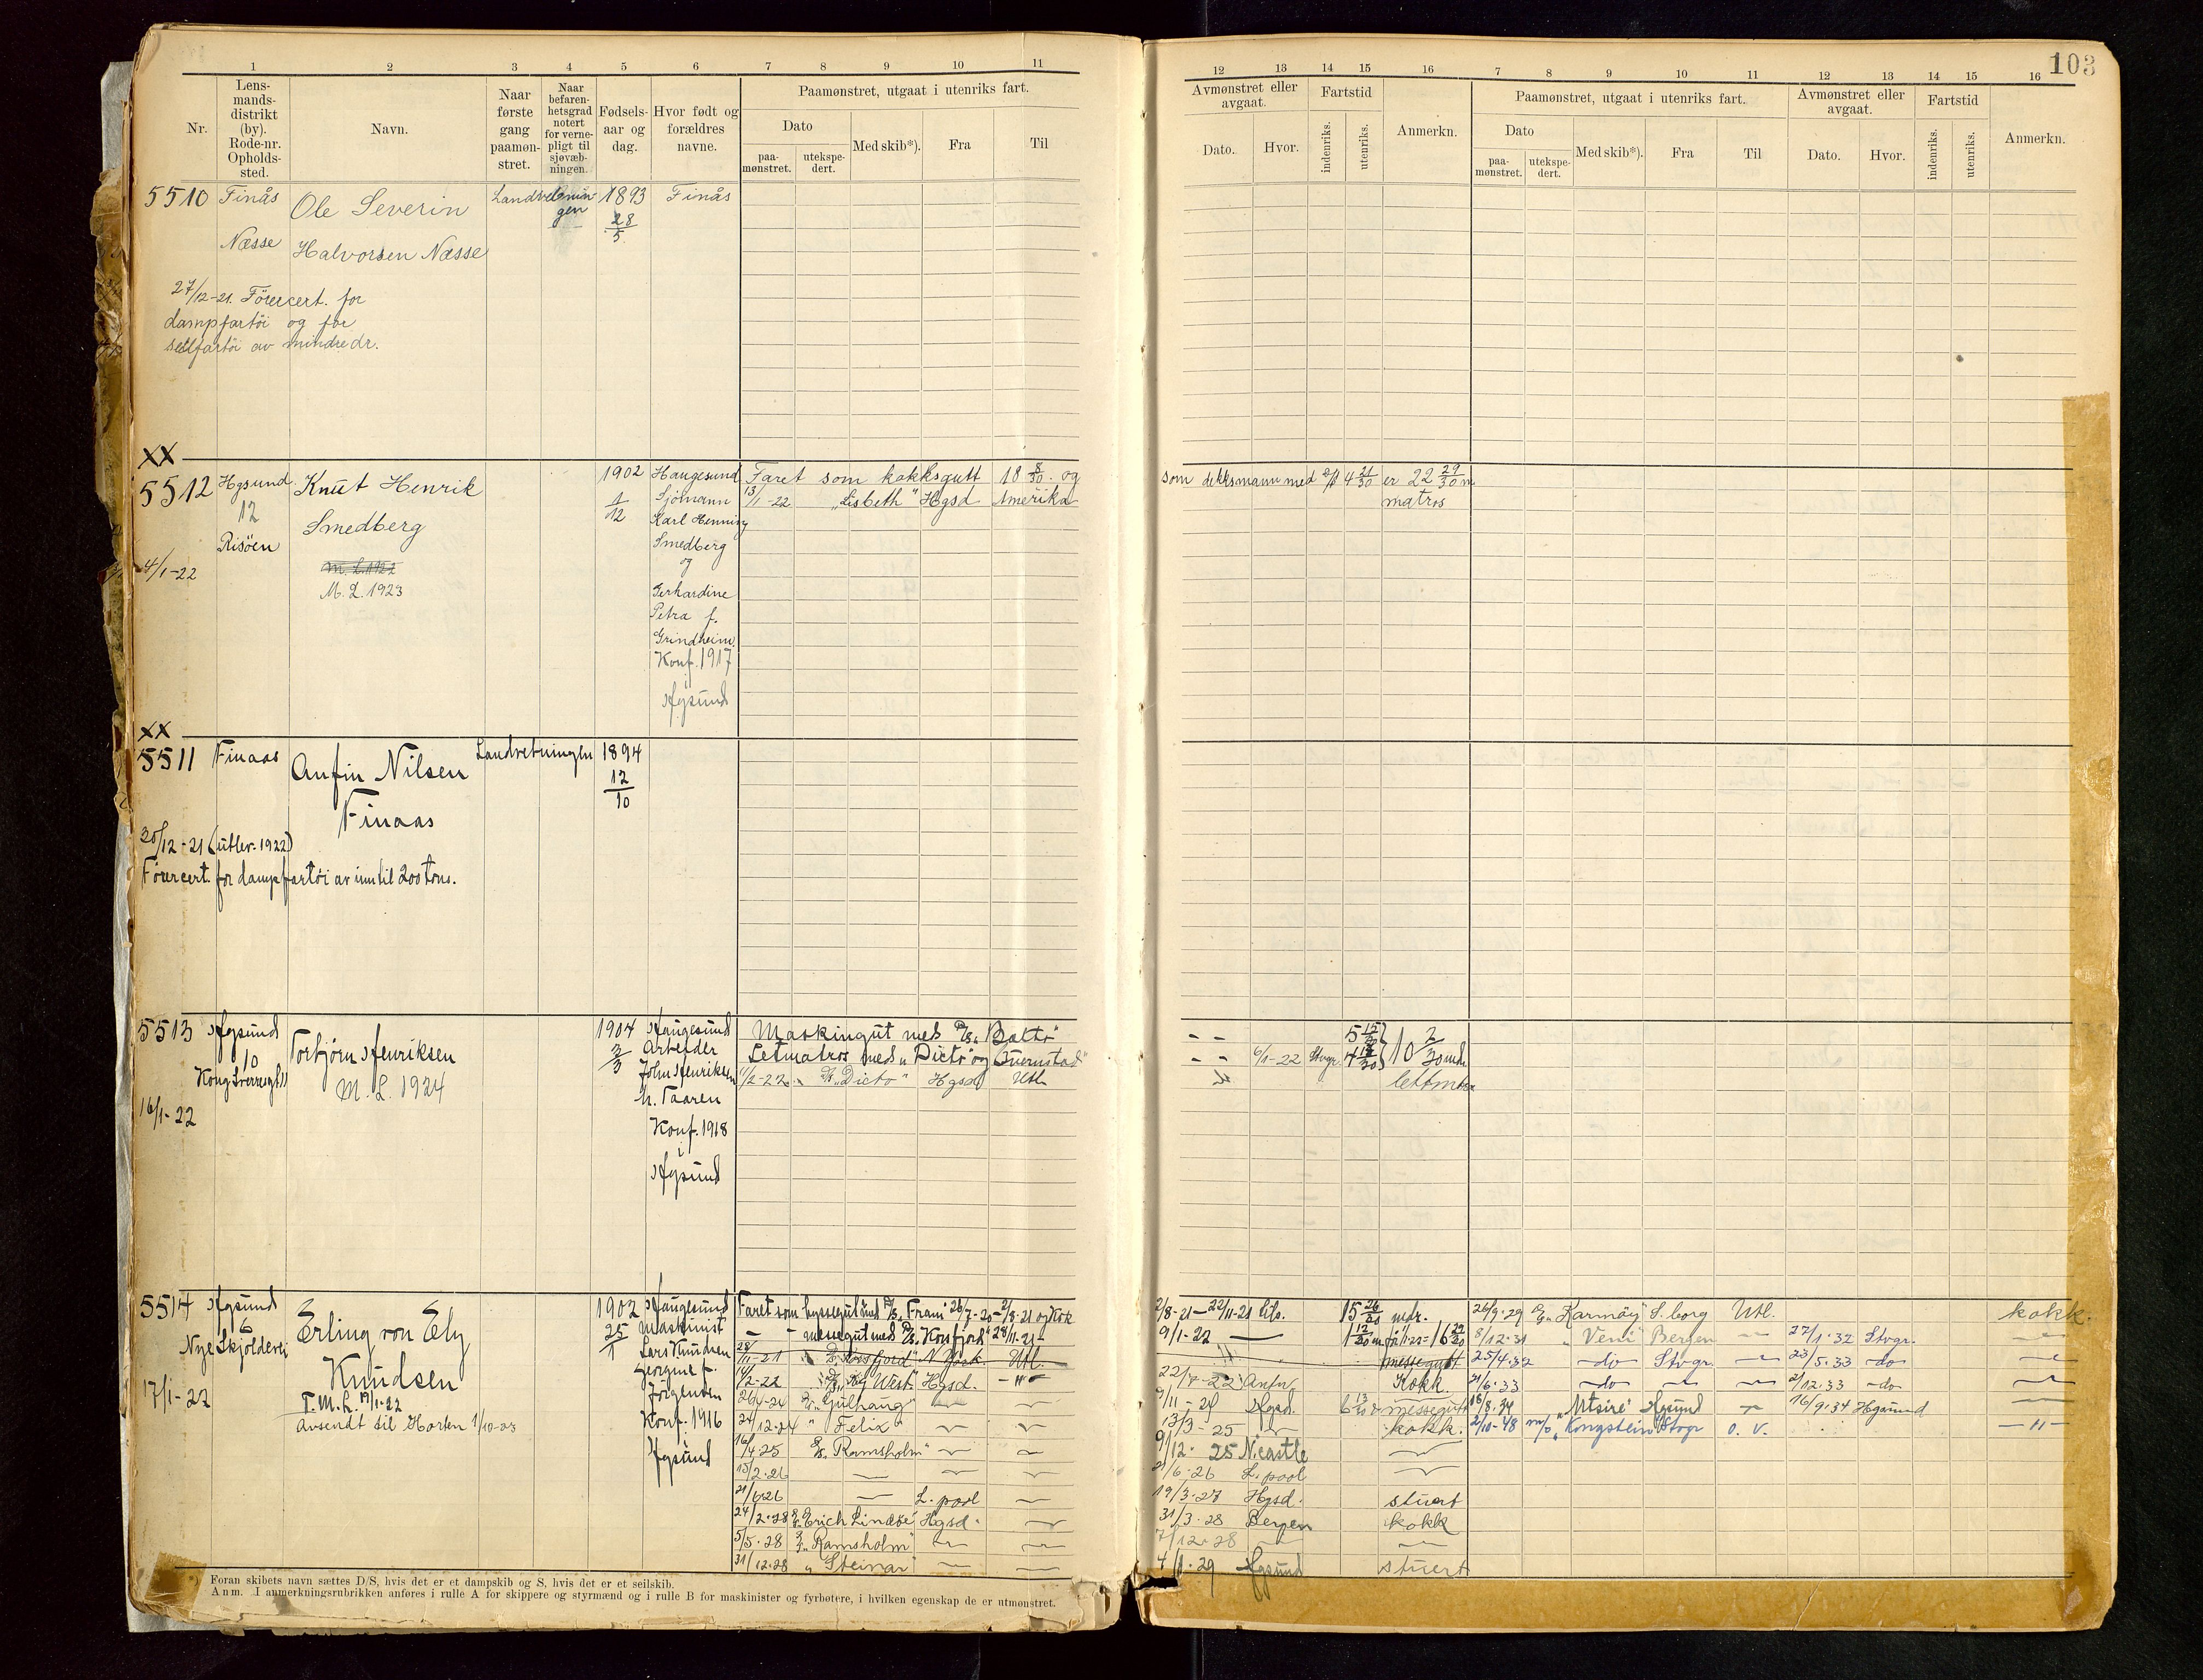 103
1 2 3 4 5 6 7 8 9 10 11
Nr.
Lens-
mands-
distrikt
(by).
Rode-nr.
Opholds-
sted.
Navn.
Naar
første
gang
paamøn-
stret.
Naar
befaren-
hetsgrad
notert
for verne-
pligt til
sjøvæb-
ningen.
Fødsels-
aar og
dag.
Hvor født og
forældres
navne.
Paamønstret, utgaat i utenriks fart.
Dato
paa-
mønstret.
utekspe-
dert.
Med skib*).
Fra
Til
12 13 14 15 16 7 8 9 10 11 12 13 14 15 16
Avmønstret eller
avgaat.
Dato.
Hvor.
Fartstid
indenriks.
utenriks.
Anmerkn.
Paamønstret, utgaat i utenriks fart.
Dato
paa-
mønstret.
utekspe-
dert.
Med skib*).
Fra
Til
Avmønstret eller
avgaat.
Dato.
Hvor.
Fartstid
indenriks.
utenriks.
Anmerkn.
5510 Finås
Næsse
Ole Severin
Halvorsen Næsse
1893
28/5
Finås
27/12-21. Förercert. for
dampfartöi og for
seilfartöi av mindre dr.
XX
5512 Hgsund
12
Risöen
4/1-22
Knut Henrik
Smedberg
m. L. 1922
M. L. 1923
1902
1/12
Haugesund
Sjömann
Karl Henning
Smedberg
og
Gerhardine
Petra f.
Grindheim.
Konf. 1917
i
Hgsund
Faret som kokksgutt 18 8/30. og
som dekksmann med 4 21/30 er 22 29/30 m
13/1-22 "Lisbeth" Hgsd Amerika
matros
XX
5511 Finaas
Anfin Nilsen
Finaas
Landvetningen
1894
12/10
20/12-21 (utlev. 1922)
Förercert. for dampfartöi av inntil 200 tons.
5513 Hgsund
10
16/1-22
Torbjörn Henriksen
M. L. 1924
1904
3/3
Haugesund
Arbeider
John Henriksen
Konf. 1918
i
Hgsund
Maskingut med D/S "Balto"
Letmatros med "Dicto" og
5 15/30
6/1-22 Stvgr. 10 2/30 mdr
11/2-22 D/S "Dicto" Hgsd Utl.
5514 Hgsund
6
Nye Skjoldevei
17/1-22
Erling von Ely
Knudsen
T. M. L. 19/1-22
avsendt til Horten 1/10-23
1902
25/1
Haugesund
Maskinist
Lars Knudsen
Georgine f.
Jörgensen
Konf. 1916
i
Hgsund
Faret som byssegut med D/S "Fram" 26/7-20-2/8-21 og Kok
2/8-21-22/11-21 15 26/30 mdr.
— messegut med D/S "Korsfjord" 28/11-21-
9/1-22
28/11-21 D/S "Korsfjord" N. York. Utl.
messegutt
14/2-22 D/S "Key West" Hgsd. -"-
22/7-22 Antw. Kokk.
26/4-24 "Gulhaug"
9/11-24 Hgsd. messegutt
24/12-24 " "Felix"
13/3-25 kokk.
16/4.25 D/S "Ramsholm"
9/12. 25 N.castle
15/2-26
21/6-26 L. pool
21/6.26 L. pool
19/3-27 Hgsd. stuert
24/2-28 "Erich Lindøe" Hgsd.
31/3-28 Bergen kokk
5/5.28 "Ramsholm"
7/12-28
31/12.28 "Steinar"
4/8.29 Hgsund stuert
26/9.29 "Karmöy" S. borg Utl. kokk.
8/12.31 " "Veni" Bergen 27/1.32 Stvgr.
25/4.32 -do- Stvgr. 23/5.33 -do-
21/6.33 -do- 2/12.33 -do-
18/8.34 "Utsire" Hgsund 16/9.34 Hgsund
2/10-48 m/s "Kongstein" Stvgr O. V. -"-
Foran skibets navn sættes D/S, hvis det er et dampskib og S, hvis det er et seilskib.
Anm. I anmerkningsrubrikken anføres i rulle A for skippere og styrmænd og i rulle B for maskinister og fyrbøtere, i hvilken egenskap de er utmønstret.